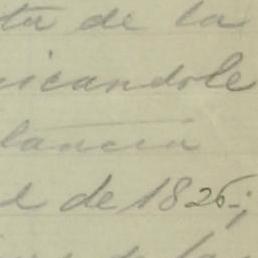 ta de la
icandole
lancia
l de 1826-;